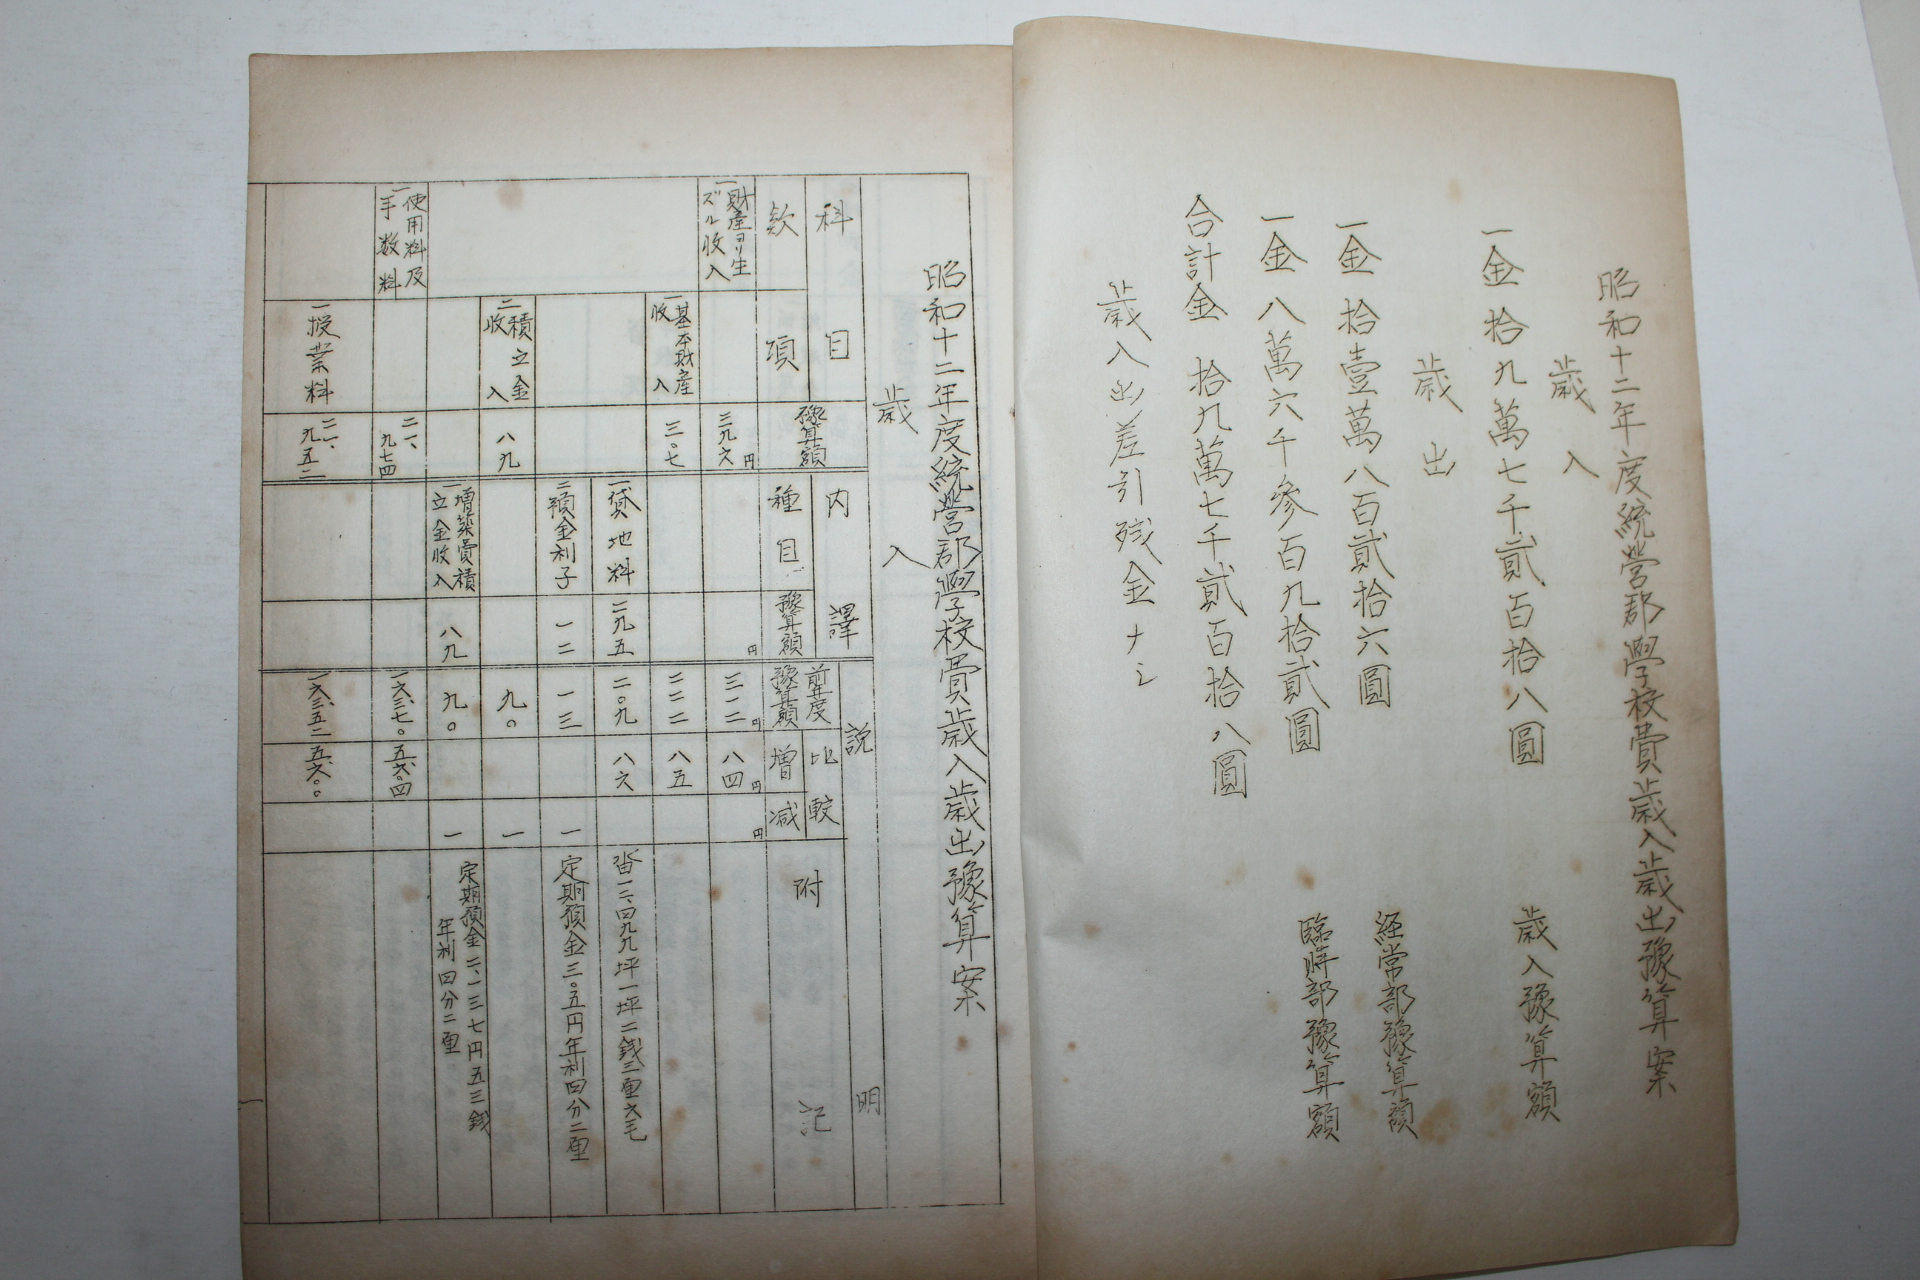 昭和十二年度統營郡學校費歳入歳出豫算案
歳入
一金拾九萬七千貳百拾八圓 歳入豫算額
歳出
一金拾壹萬八百貳拾六圓 経常部豫算額
一金八萬六千參百九拾貳圓 臨時部豫算額
合計金 拾九萬七千貳百拾八圓
歳入出差引残金ナシ
昭和十二年度統營郡學校費歳入歳出豫算案
歳入
科目
内譯
説明
款
項
豫算額
種目
豫算額
前年度豫算額
比較
増
減
附記
一財産ヨリ生
ズル收入
三九六円
円
三一二円
八四円
円
一基本財産
收入
三〇七
二二二
八五
一貸地料
二九五
二〇九
八六
畓一二、四九九坪一坪二銭三厘六毛
二預金利子
一二
一三
一
定期預金三〇五円年利四分二厘
二積立金
收入
八九
九〇
一
一増築費積
立金收入
八九
九〇
一
定期預金二、一三七円五三銭
年利四分二厘
一使用料及
手数料
二一、九七四
一六、三七〇
五、六〇四
一授業料
二一、九五二
一六、三五二
五、六〇〇